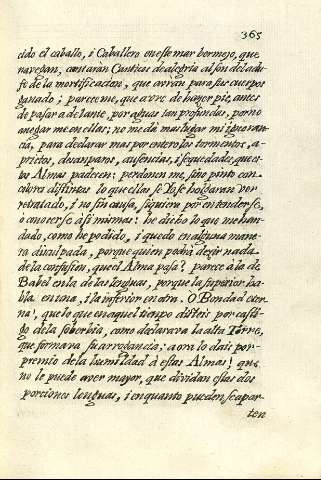 365
cido el caballo, i Caballero en este mar bermejo, que
navegan, cantaràn Canticas de alegria al són del adu-
fe de la mortificacion, que avràn para sus cuerpos
ganado; pareceme, que avre de hazer pie, antes
de pasar adelante, por aguas tan profundas, por no
anegarme en ellas; no me dà mas lugar mi ignoran-
cia, para declarar mas por entero los tormentos, a-
prietos, desamparos, ausencias, i sequedades que es-
tas Almas padecen: perdonenme, si no pinto con
colores distintos lo que ellas se Yo se holgaran ver
retratado, i no sin causa, siquiera por entenderse,
ò conocerse à si mismas: he dicho lo que me han
dado, como he podido, i quedo en alguna mane-
ra disculpada, porque quien podrà dezir nada
de la confusion, que el Alma pasa? parece à la de
Babel en la de las lenguas, porque la superior ha-
bla en una, i la inferior en otra. O Bondad eter-
na!, que lo que en aquel tiempo disteis por casti-
go de la soberbia, como declarava la alta Torre,
que formava su arrogancia: aora lo dais por
premio de la humildad à estas Almas! que
no le puede aver mayor, que dividan estas dos
porciones lenguas, i en quanto pueden se apar-
ten